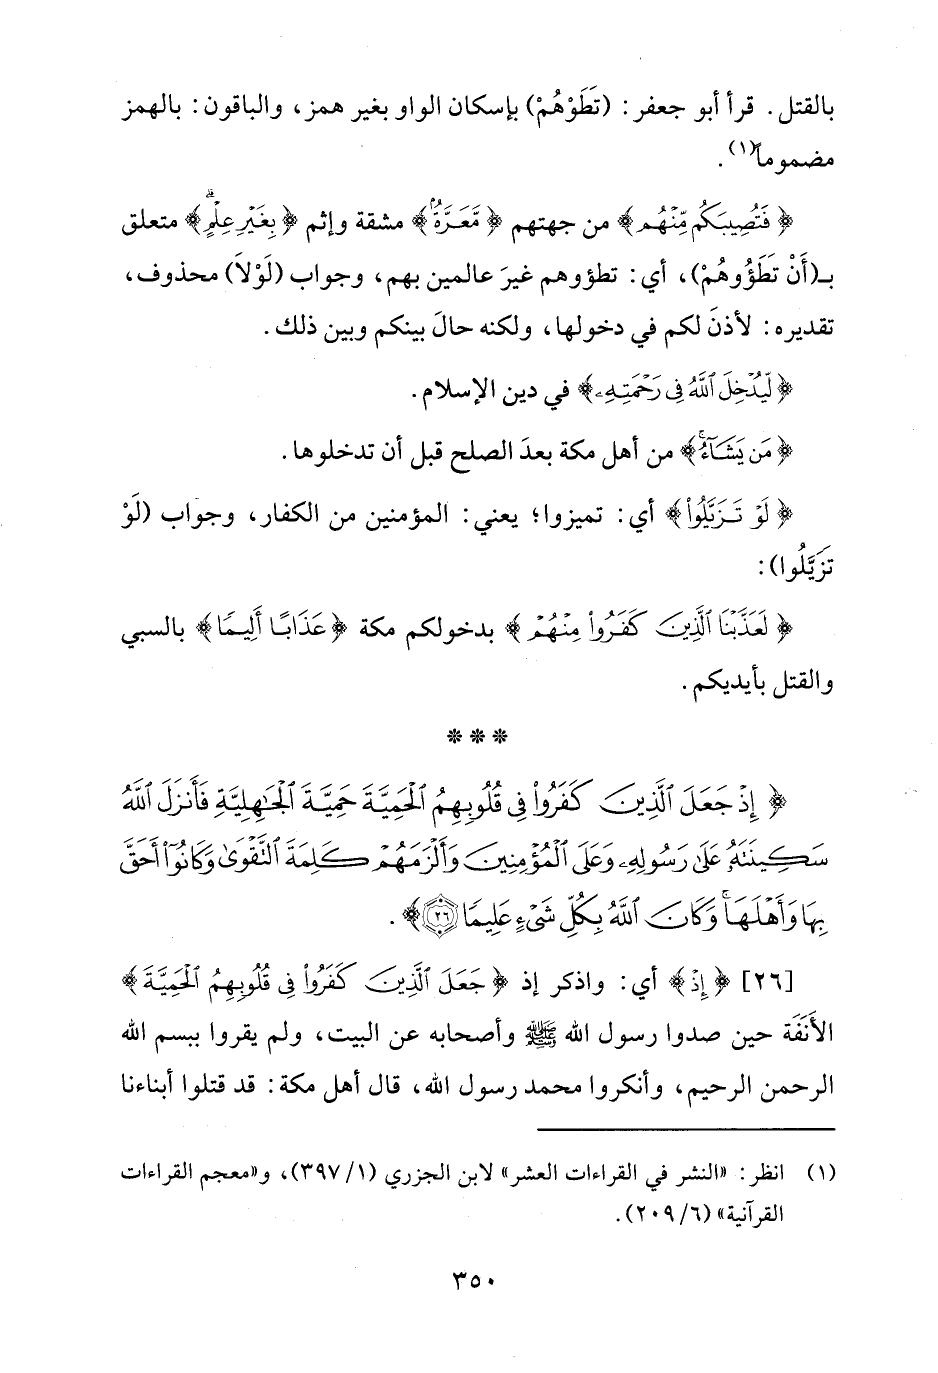 بالقتل. قرأ أبو جعفر: (تَطَوْهُمْ) بإسكان الواو بغير همز، والباقون: بالهمز
مضموماً(١).
﴿فَتُصِيبَكُم مِّنْهُم﴾ من جهتهم ﴿مَّعَرَّةٌ﴾ مشقة وإثم ﴿بِغَيْرِ عِلْمٍ﴾ متعلق
بـ(أَنْ تَطَؤُوهُمْ)، أي: تطؤوهم غيرَ عالمين بهم، وجواب (لَوْلاَ) محذوف،
تقديره: لأذنَ لكم في دخولها، ولكنه حالَ بينكم وبين ذلك.
﴿لِّيُدْخِلَ ٱللَّهُ فِى رَحْمَتِهِۦ﴾ في دين الإسلام.
﴿مَن يَشَآءُ﴾ من أهل مكة بعدَ الصلح قبل أن تدخلوها.
﴿لَوْ تَزَيَّلُوا۟﴾ أي: تميزوا؛ يعني: المؤمنين من الكفار، وجواب (لَوْ
تَزَيَّلُوا):
﴿لَعَذَّبْنَا ٱلَّذِينَ كَفَرُوا۟ مِنْهُمْ﴾ بدخولكم مكة ﴿عَذَابًا أَلِيمًا﴾ بالسبي
والقتل بأيديكم.
* * *
﴿إِذْ جَعَلَ ٱلَّذِينَ كَفَرُوا۟ فِى قُلُوبِهِمُ ٱلْحَمِيَّةَ حَمِيَّةَ ٱلْجَٰهِلِيَّةِ فَأَنزَلَ ٱللَّهُ
سَكِينَتَهُۥ عَلَىٰ رَسُولِهِۦ وَعَلَى ٱلْمُؤْمِنِينَ وَأَلْزَمَهُمْ كَلِمَةَ ٱلتَّقْوَىٰ وَكَانُوٓا۟ أَحَقَّ
بِهَا وَأَهْلَهَا ۚ وَكَانَ ٱللَّهُ بِكُلِّ شَىْءٍ عَلِيمًا ٢٦﴾.
[٢٦] ﴿إِذْ﴾ أي: واذكر إذ ﴿جَعَلَ ٱلَّذِينَ كَفَرُوا۟ فِى قُلُوبِهِمُ ٱلْحَمِيَّةَ﴾
الأَنَفَة حين صدوا رسول الله ﷺ وأصحابه عن البيت، ولم يقروا ببسم الله
الرحمن الرحيم، وأنكروا محمد رسول الله، قال أهل مكة: قد قتلوا أبناءنا
(١) انظر: «النشر في القراءات العشر» لابن الجزري (١/ ٣٩٧)، و«معجم القراءات
القرآنية» (٦/ ٢٠٩).
٣٥٠